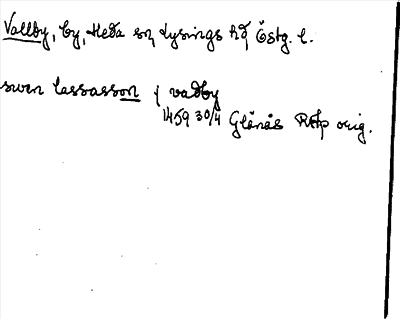 Vallby, by, Heda sn Lysings hd Östg. l.
swen lassasson j vadby
1459 30/4 Glänås RAp orig.